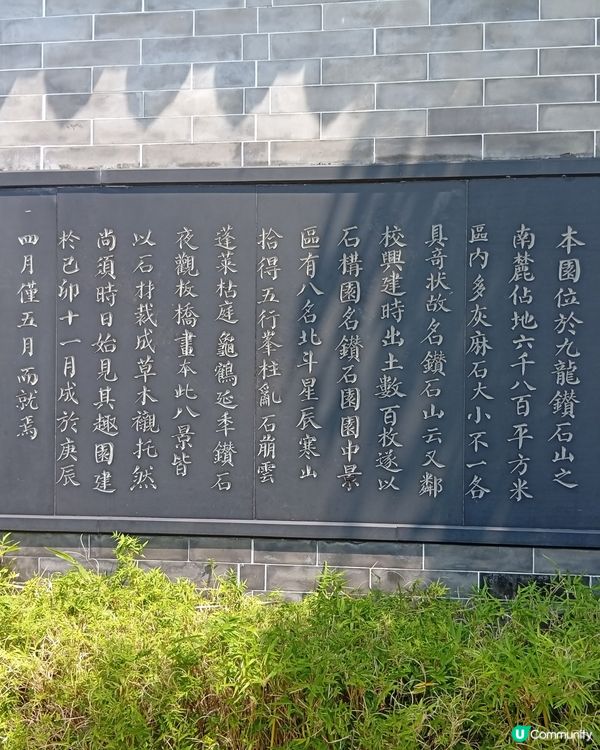 本園位於九龍鑽石山之
南麓佔地六千八百平方米
區內多灰麻石大小不一各
具奇狀故名鑽石山云又鄰
校興建時出土數百枚遂以
石構園名鑽石園園中景
區有八名北斗星辰寒山
拾得五行峯柱亂石崩雲
蓬萊枯庭龜鶴延年鑽石
夜觀板橋畫本此八景皆
以石材裁成草木襯托然
尚須時日始見其趣園建
於己卯十一月成於庚辰
四月僅五月而就焉
U Community